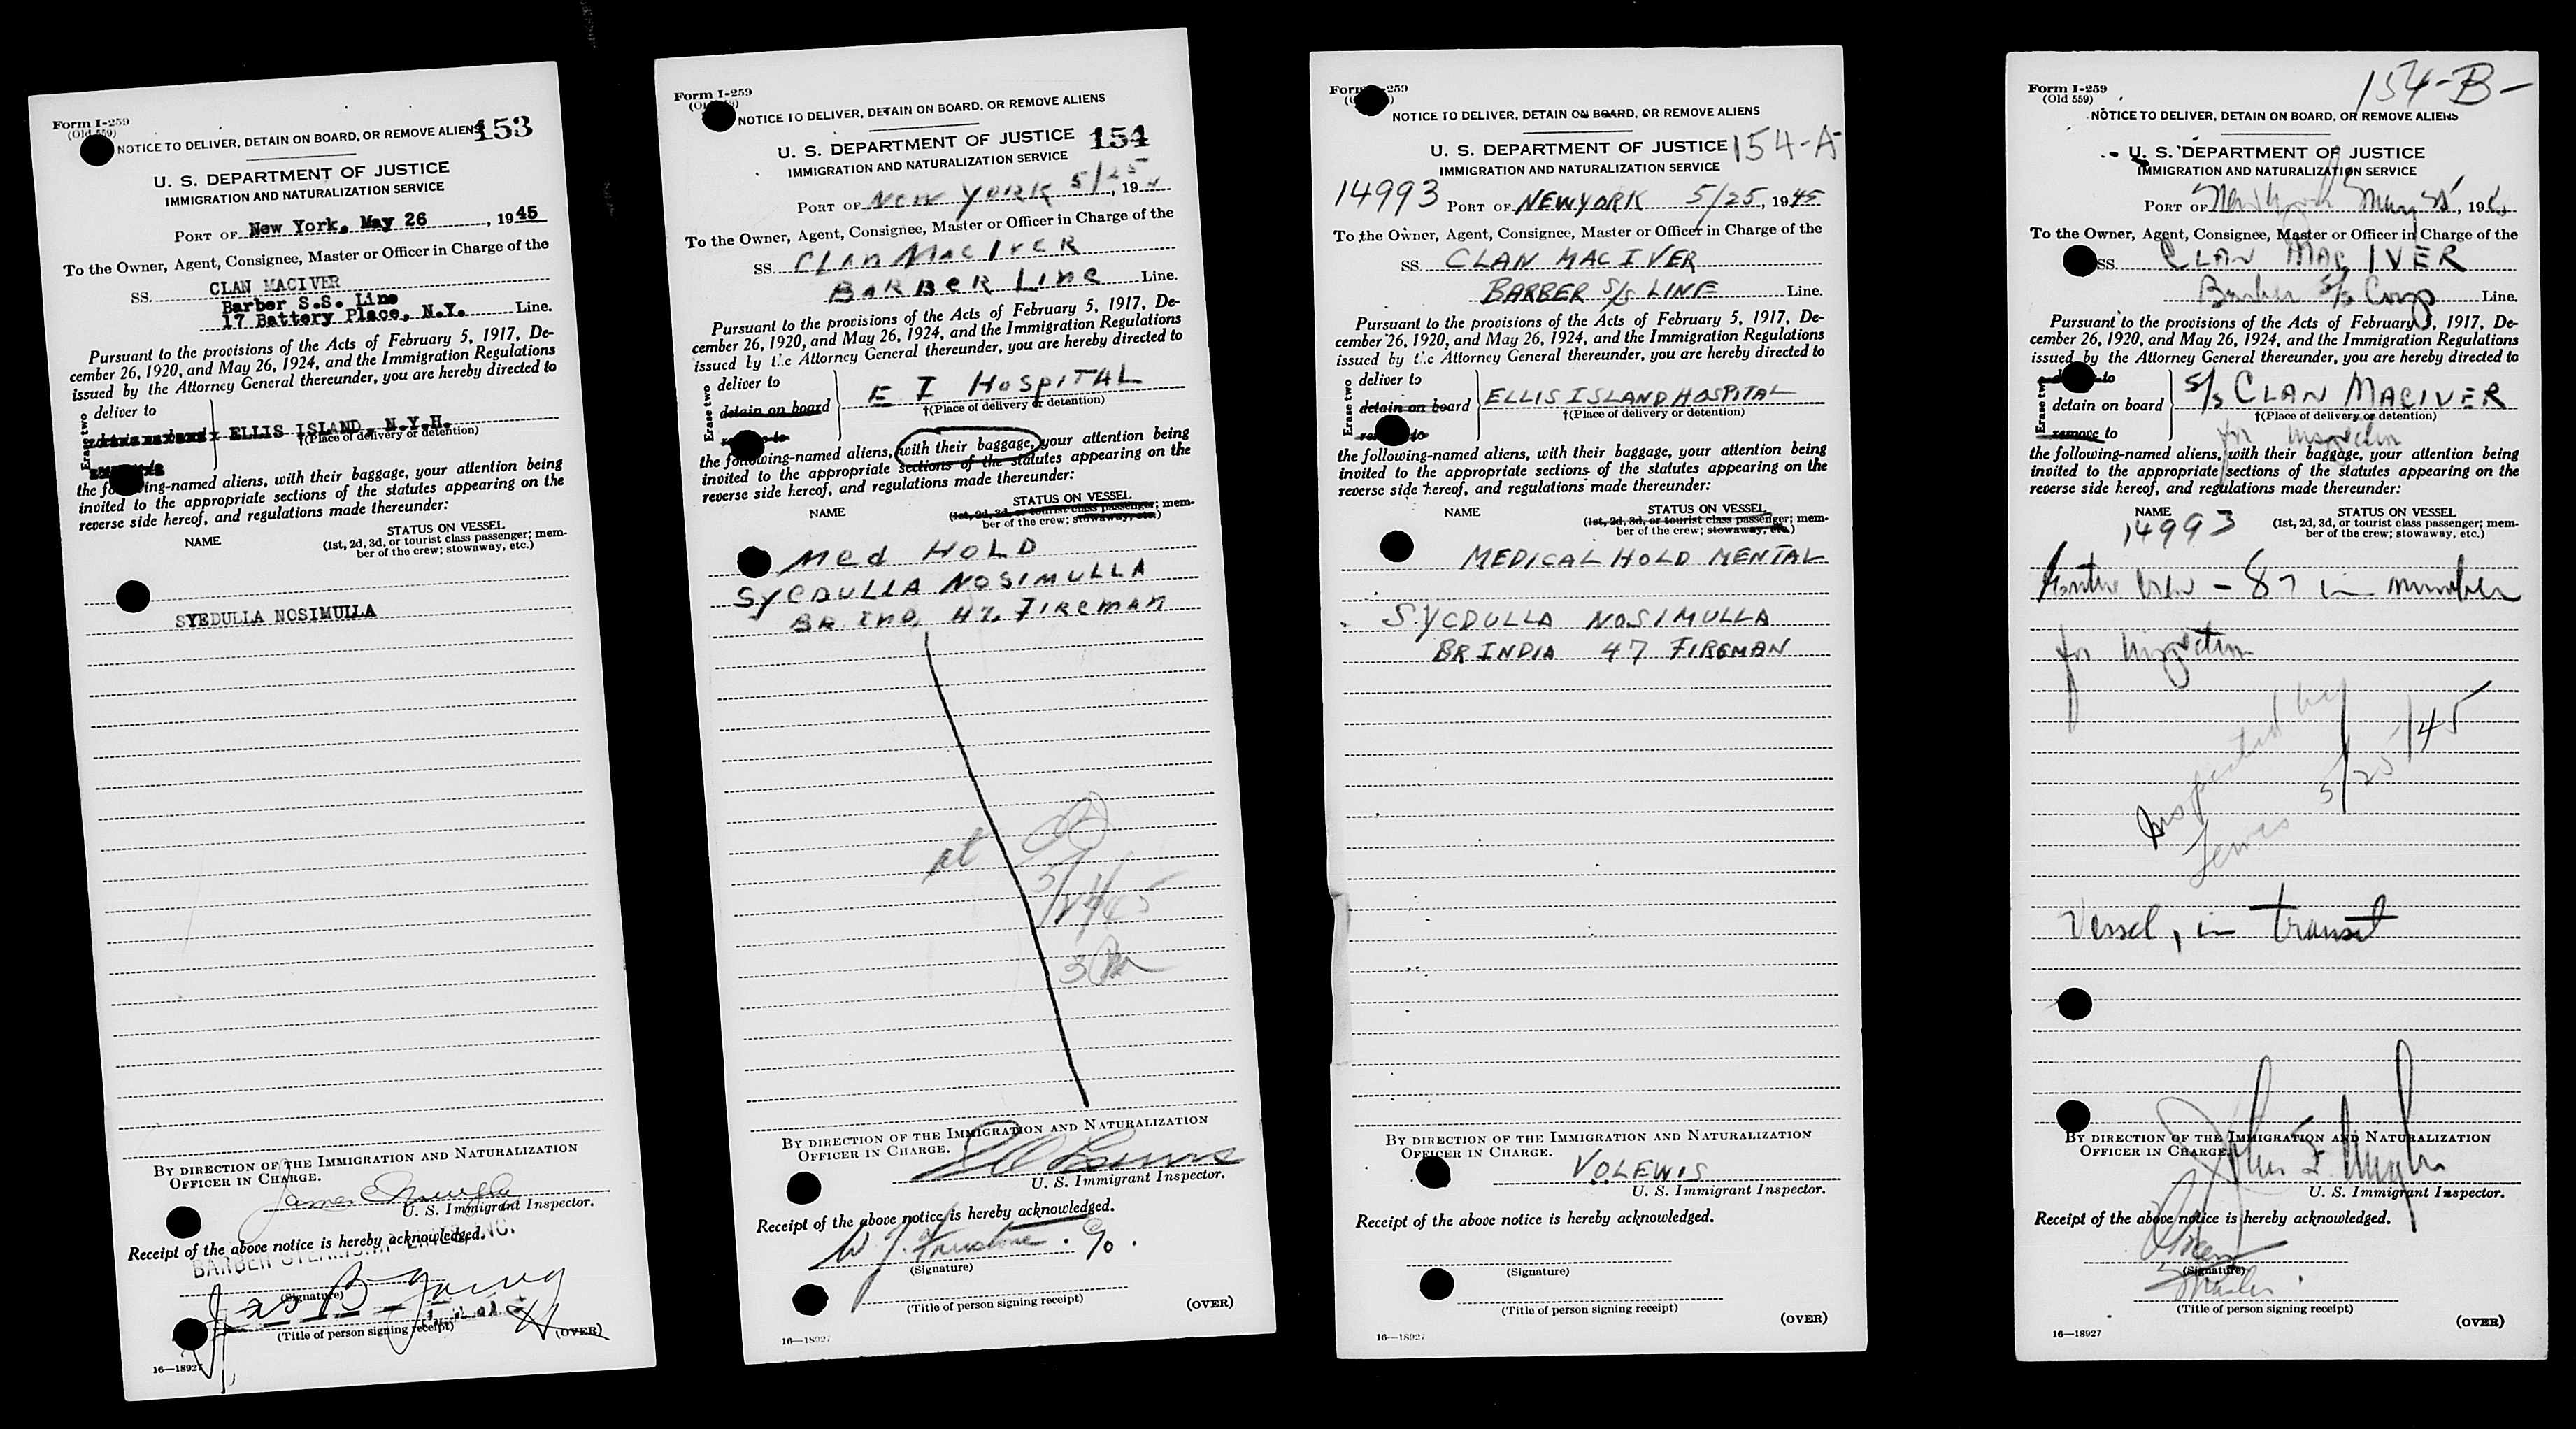 Form I-259
(Old 559)
153
NOTICE TO DELIVER, DETAIN ON BOARD, OR REMOVE ALIENS
U. S. DEPARTMENT OF JUSTICE
IMMIGRATION AND NATURALIZATION SERVICE
PORT OF New York, May 26, 1945
To the Owner, Agent, Consignee, Master or Officer in Charge of the
SS. CLAN MACIVER
Barber S.S. Line
17 Battery Place, N.Y. Line.
Pursuant to the provisions of the Acts of February 5, 1917, De-
cember 26, 1920, and May 26, 1924, and the Immigration Regulations
issued by the Attorney General thereunder, you are hereby directed to
Erase two
deliver to
ELLIS ISLAND, N.Y.H.
†(Place of delivery or detention)
the following-named aliens, with their baggage, your attention being
invited to the appropriate sections of the statutes appearing on the
reverse side hereof, and regulations made thereunder:
NAME
STATUS ON VESSEL
(1st, 2d, 3d, or tourist class passenger; mem-
ber of the crew; stowaway, etc.)
SYEDULLA NOSIMULLA
BY DIRECTION OF THE IMMIGRATION AND NATURALIZATION
OFFICER IN CHARGE.
James
U. S. Immigrant Inspector.
Receipt of the above notice is hereby acknowledged.
BARBER STEAMSHIP LINES, INC.
Jas B Young
(Signature)
(Title of person signing receipt)
(OVER)
16—18927
Form I-259
NOTICE TO DELIVER, DETAIN ON BOARD, OR REMOVE ALIENS
U. S. DEPARTMENT OF JUSTICE 154
IMMIGRATION AND NATURALIZATION SERVICE
PORT OF NEW YORK 5/25, 19
To the Owner, Agent, Consignee, Master or Officer in Charge of the
SS. CLAN MACIVER
BARBER LINE Line.
Pursuant to the provisions of the Acts of February 5, 1917, De-
cember 26, 1920, and May 26, 1924, and the Immigration Regulations
issued by the Attorney General thereunder, you are hereby directed to
Erase two
deliver to
detain on board
E I HOSPITAL
†(Place of delivery or detention)
the following-named aliens, with their baggage, your attention being
invited to the appropriate sections of the statutes appearing on the
reverse side hereof, and regulations made thereunder:
NAME
STATUS ON VESSEL
(1st, 2d, 3d, or tourist class passenger; mem-
ber of the crew; stowaway, etc.)
Med HOLD
SYCDULLA NOSIMULLA
BR IND, 47, FIREMAN
BY DIRECTION OF THE IMMIGRATION AND NATURALIZATION
OFFICER IN CHARGE.
Lewis
U. S. Immigrant Inspector.
Receipt of the above notice is hereby acknowledged.
(Signature)
(Title of person signing receipt)
(OVER)
16—18927
Form I-259
NOTICE TO DELIVER, DETAIN ON BOARD, OR REMOVE ALIENS
U. S. DEPARTMENT OF JUSTICE 154-A
IMMIGRATION AND NATURALIZATION SERVICE
14993 PORT OF NEWYORK 5/25, 1945
To the Owner, Agent, Consignee, Master or Officer in Charge of the
SS. CLAN MAC IVER
BARBER S/S LINE Line.
Pursuant to the provisions of the Acts of February 5, 1917, De-
cember 26, 1920, and May 26, 1924, and the Immigration Regulations
issued by the Attorney General thereunder, you are hereby directed to
Erase two
deliver to
detain on board
ELLIS ISLAND HOSPITAL
†(Place of delivery or detention)
the following-named aliens, with their baggage, your attention being
invited to the appropriate sections of the statutes appearing on the
reverse side hereof, and regulations made thereunder:
NAME
STATUS ON VESSEL
(1st, 2d, 3d, or tourist class passenger; mem-
ber of the crew; stowaway, etc.)
MEDICAL HOLD MENTAL
SYCDULLA NOSIMULLA
BR INDIA 47 FIREMAN
BY DIRECTION OF THE IMMIGRATION AND NATURALIZATION
OFFICER IN CHARGE.
V.O.LEWIS
U. S. Immigrant Inspector.
Receipt of the above notice is hereby acknowledged.
(Signature)
(Title of person signing receipt)
(OVER)
16—18927
154-B-
Form I-259
(Old 559)
NOTICE TO DELIVER, DETAIN ON BOARD, OR REMOVE ALIENS
U. S. DEPARTMENT OF JUSTICE
IMMIGRATION AND NATURALIZATION SERVICE
PORT OF New York May 25, 1945
To the Owner, Agent, Consignee, Master or Officer in Charge of the
SS. CLAN MAC IVER
Barber S/S Corp Line.
Pursuant to the provisions of the Acts of February 5, 1917, De-
cember 26, 1920, and May 26, 1924, and the Immigration Regulations
issued by the Attorney General thereunder, you are hereby directed to
Erase two
detain on board
remove to
S/S CLAN MACIVER
†(Place of delivery or detention)
for inspection
the following-named aliens, with their baggage, your attention being
invited to the appropriate sections of the statutes appearing on the
reverse side hereof, and regulations made thereunder:
NAME
14993
STATUS ON VESSEL
(1st, 2d, 3d, or tourist class passenger; mem-
ber of the crew; stowaway, etc.)
Entire crew - 87 in number
for inspection
Inspected by
Lewis 5/25/45
Vessel, in transit
BY DIRECTION OF THE IMMIGRATION AND NATURALIZATION
OFFICER IN CHARGE.
U. S. Immigrant Inspector.
Receipt of the above notice is hereby acknowledged.
(Signature)
Master
(Title of person signing receipt)
(OVER)
16—18927